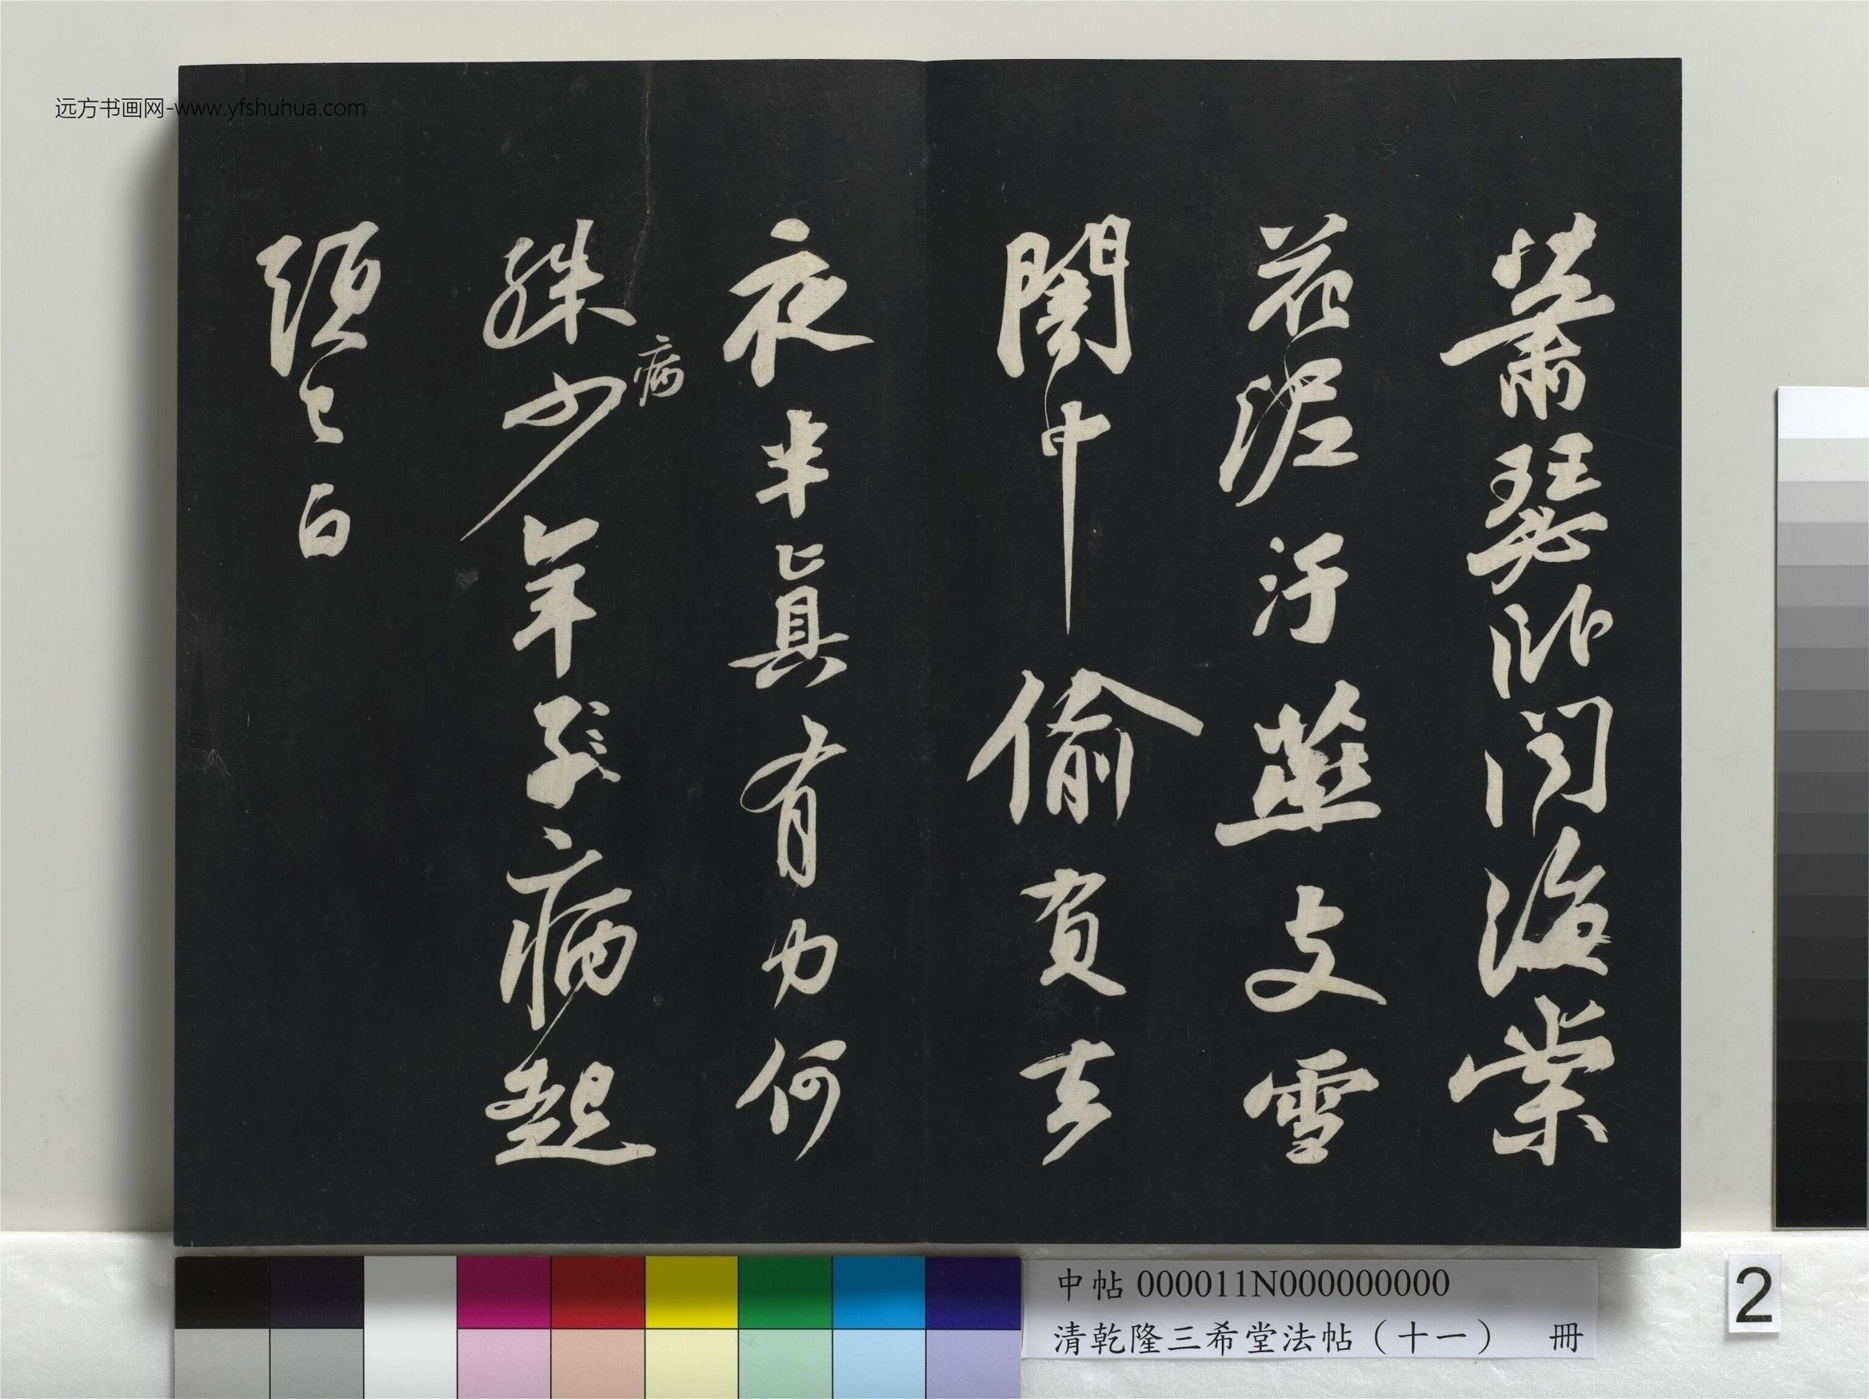 蕭瑟卧聞海棠
花泥汙燕支雪
闇中偷負去
夜半真有力何
殊少年子病起
病
須已白
远方书画网-www.yfshuhua.com
中帖 000011N000000000
清乾隆三希堂法帖（十一） 冊
2